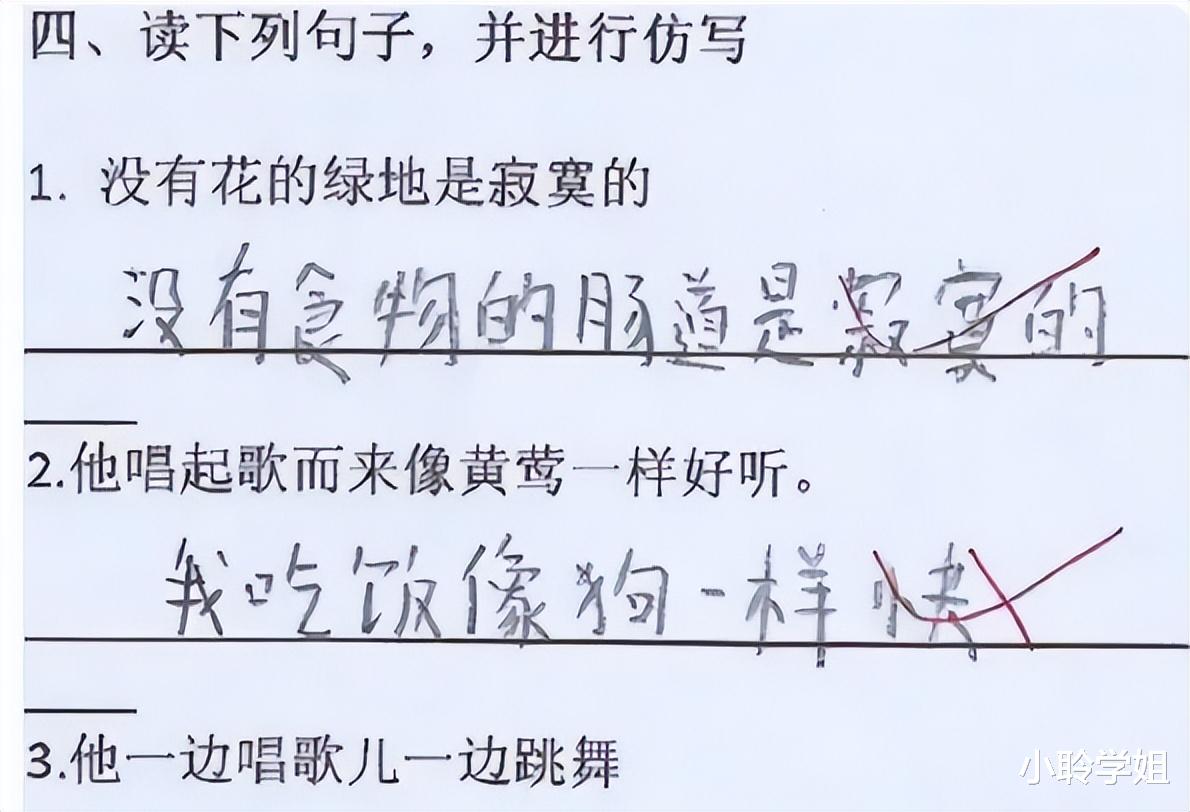 四、读下列句子，并进行仿写
1. 没有花的绿地是寂寞的
没有食物的肠道是寂寞的
2.他唱起歌而来像黄莺一样好听。
我吃饭像狗一样快
3.他一边唱歌儿一边跳舞
小聆学姐